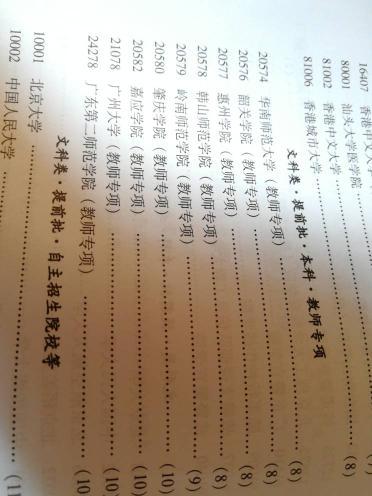 16407 香港中文大学
80001 汕头大学医学院
81002 香港中文大学
81006 香港城市大学 ……………… (8)
文科类·提前批·本科·教师专项
20574 华南师范大学（教师专项） ……………… (8)
20576 韶关学院（教师专项） ……………… (8)
20577 惠州学院（教师专项） ……………… (8)
20578 韩山师范学院（教师专项） ……………… (8)
20579 岭南师范学院（教师专项） ……………… (9)
20580 肇庆学院（教师专项） ……………… (10)
20582 嘉应学院（教师专项） ……………… (10)
21078 广州大学（教师专项） ……………… (10)
24278 广东第二师范学院（教师专项） ……………… (10
文科类·提前批·自主招生院校等
10001 北京大学 ……………… (11
10002 中国人民大学 ………………